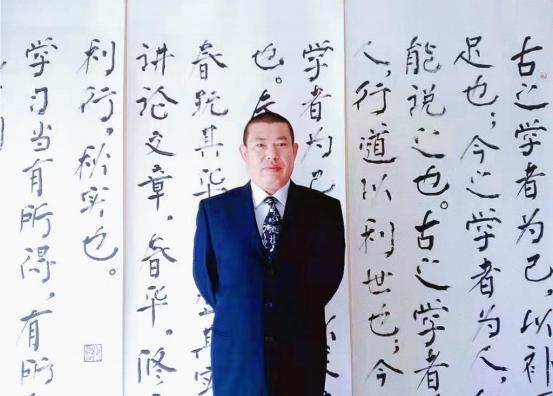 古之学者为己，以补
足也；今之学者为人，
能说之也。古之学者
人，行道以利世也；今
学者为己
也。
春玩其华 其实
讲论文章，春华。修
利行，秋实也。
学习当有所得，有所